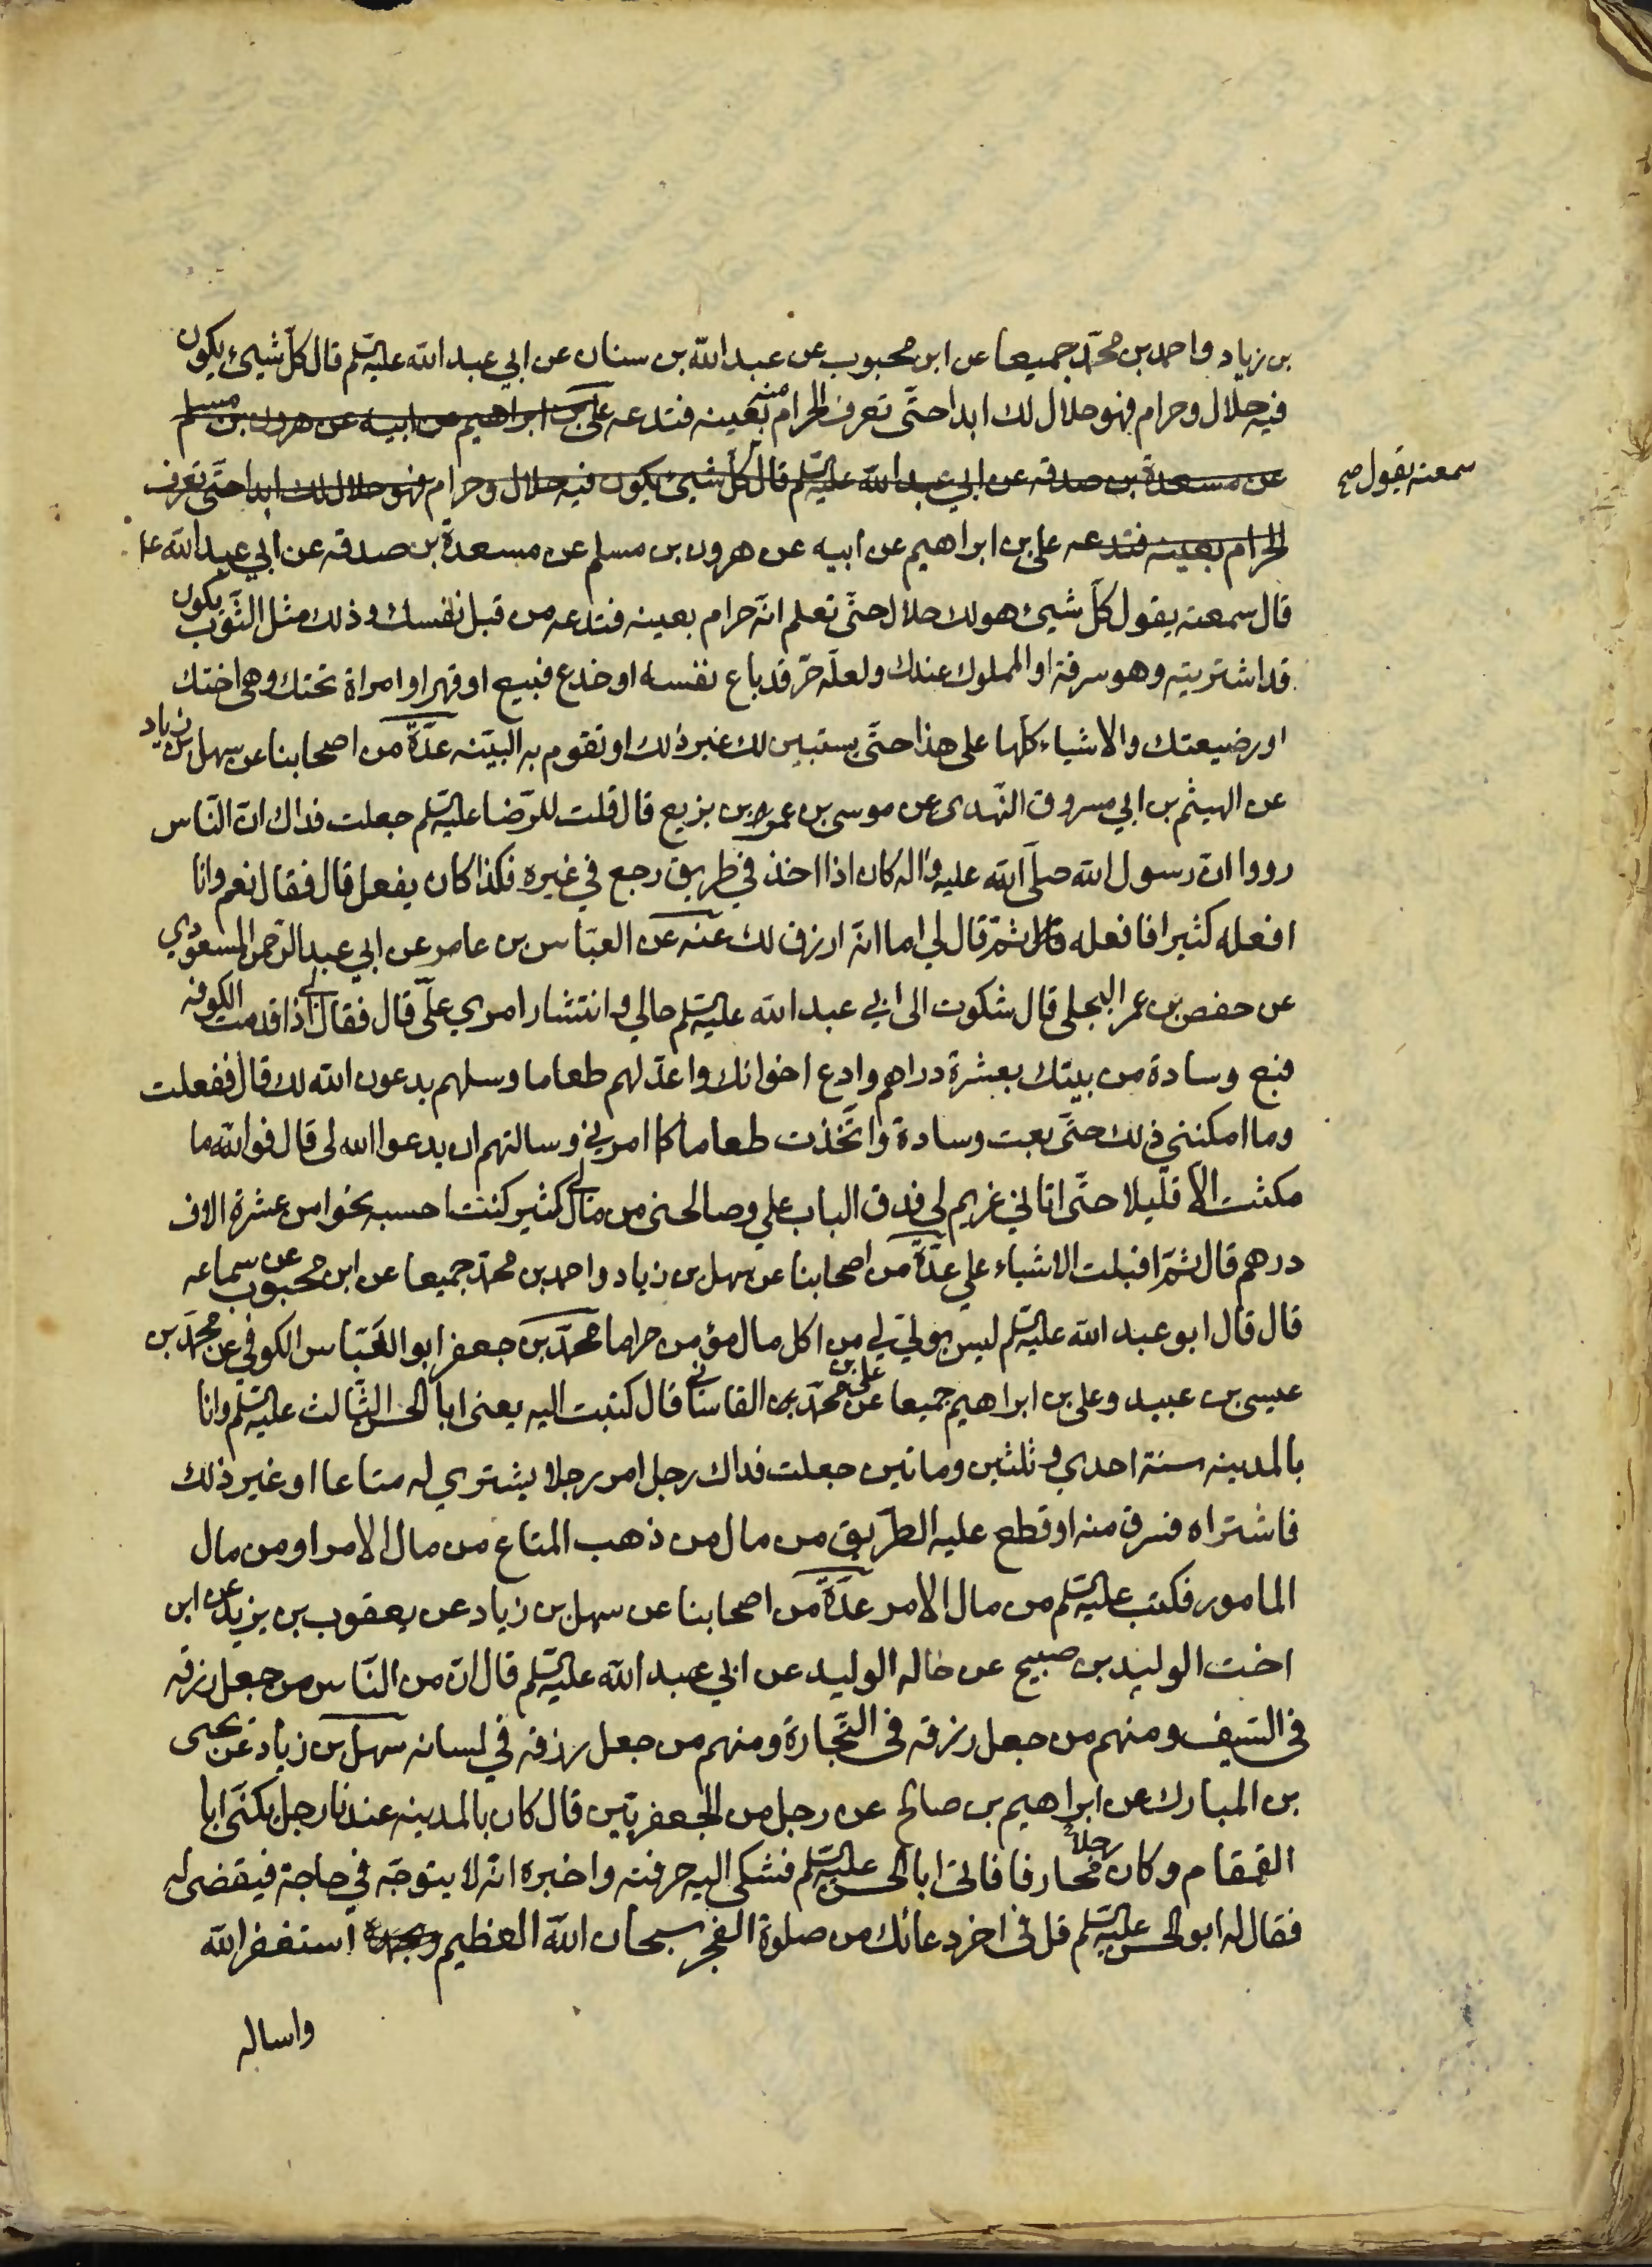 بن زياد واحمد بن محمّد جميعا عن ابن محبوب عن عبد الله بن سنان عن ابي عبد الله عليه السّلم قال كلّ شيئ يكون
فيه حلال وحرام فهو حلال لك ابدا حتّى تعرف الحرام منه بعينه فتدعه علي بن ابراهيم عن ابيه عن هرون بن مسلم
عن مسعدة بن صدقه عن ابي عبد الله عليه السّلم قال كلّ شيئ يكون فيه حلال وحرام فهو حلال لك ابدا حتّى تعرف
سمعته يقول صح
الحرام بعينه فتدعه علي بن ابراهيم عن ابيه عن هرون بن مسلم عن مسعدة بن صدقه عن ابي عبد الله عل
قال سمعته يقول كلّ شيئ هو لك حلال حتّى تعلم انّه حرام بعينه فتدعه من قبل نفسك وذلك مثل الثّوب يكون
قد اشتريته وهو سرقة او المملوك عندك ولعلّه حرّ قد باع نفسه او خدع فبيع او قهر او امراة تحتك وهي اختك
او رضيعتك والاشياء كلّها على هذا حتّى يستبين لك غير ذلك او تقوم به البيّنه عدّة من اصحابنا عن سهل بن زياد
عن الهيثم بن ابي مسروق النّهدى عن موسى بن عمر بن بزيع قال قلت للرّضا عليه السّلم جعلت فداك انّ النّاس
رووا انّ رسول الله صلّى الله عليه واله كان اذا اخذ في طريق رجع في غيره فكذا كان يفعل قال فقال نعم وانا
افعله كثيرا فافعله ثمّ قال لي اما انّه ارزق لك عنه عن العبّاس بن عامر عن ابي عبد الرّحمن المسعودي
عن حفص بن عمر البجلي قال شكوت الى ابي عبد الله عليه السّلم حالي وانتشار امري علّي قال فقال لي اذا قدمت الكوفه
فبع وسادة من بيتك بعشرة دراهم وادع اخوانك واعدّ لهم طعاما وسلهم يدعون الله لك قال ففعلت
وما امكنني ذلك حتّى بعت وسادة واتّخذت طعاما كما امرني وسالتهم ان يدعوا الله لى قال فوالله ما
مكثت الا قليلا حتّى اتاني غريم لي فدق الباب علي وصالحني من مال لي كثير كنت احسبه نحوا من عشرة الاف
درهم قال ثمّ اقبلت الاشياء علي عدّة من اصحابنا عن سهل بن زياد واحمد بن محمّد جميعا عن ابن محبوب عن سماعه
قال قال ابو عبد الله عليه السّلم ليس بوليّ لي من اكل مال مؤمن حراما محمّد بن جعفر ابو العبّاس الكوفي عن محمّد بن
عيسى بن عبيد وعلي بن ابراهيم جميعا عن علي بن محمّد القاساني قال كتبت اليه يعنى ابا الحسن الثّالث عليه السّلم وانا
بالمدينه سنة احدي و ثلثين وماتين جعلت فداك رجل امر رجلا يشتري له متاعا او غير ذلك
فاشتراه فسرق منه او قطع عليه الطّريق من مال من ذهب المتاع من مال الامر او من مال
المامور فكتب عليه السّلم من مال الامر عدّة من اصحابنا عن سهل بن زياد عن يعقوب بن يزيد عن ابن
اخت الوليد بن صبيح عن خاله الوليد عن ابي عبد الله عليه السّلم قال انّ من النّاس من جعل رزقه
في السّيف ومنهم من جعل رزقه في التّجارة ومنهم من جعل رزقه في لسانه سهل بن زياد عن يحيى
بن المبارك عن ابراهيم بن صالح عن رجل من الجعفريّين قال كان بالمدينه عندنا رجل يكنّى ابا
القمقام وكان رجلاً محارفا فاتى ابا الحسن عليه السّلم فشكى اليه حرفته واخبره انّه لا يتوجّه في حاجة فيقضى له
فقال له ابو الحسن عليه السّلم قل في اخر دعائك من صلوة الفجر سبحان الله العظيم وبحمده استغفر الله
واساله